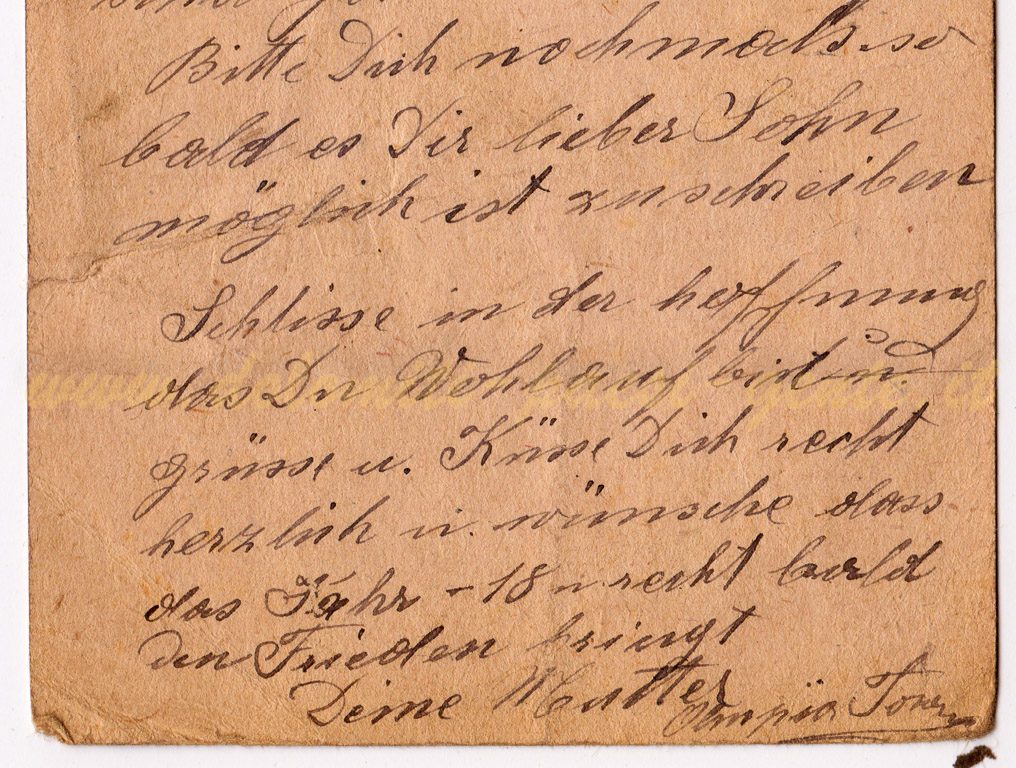 Bitte Dich nochmals so
bald es Dir lieber Sohn
möglich ist zu schreiben
Schlisse in der hoffnung
das Du Wohlauf bist u.
grüsse u. Küsse Dich recht
herzlich u. wünsche dass
das Jahr - 18 - recht bald
den Frieden bringt
Deine Mutter
Olimpia